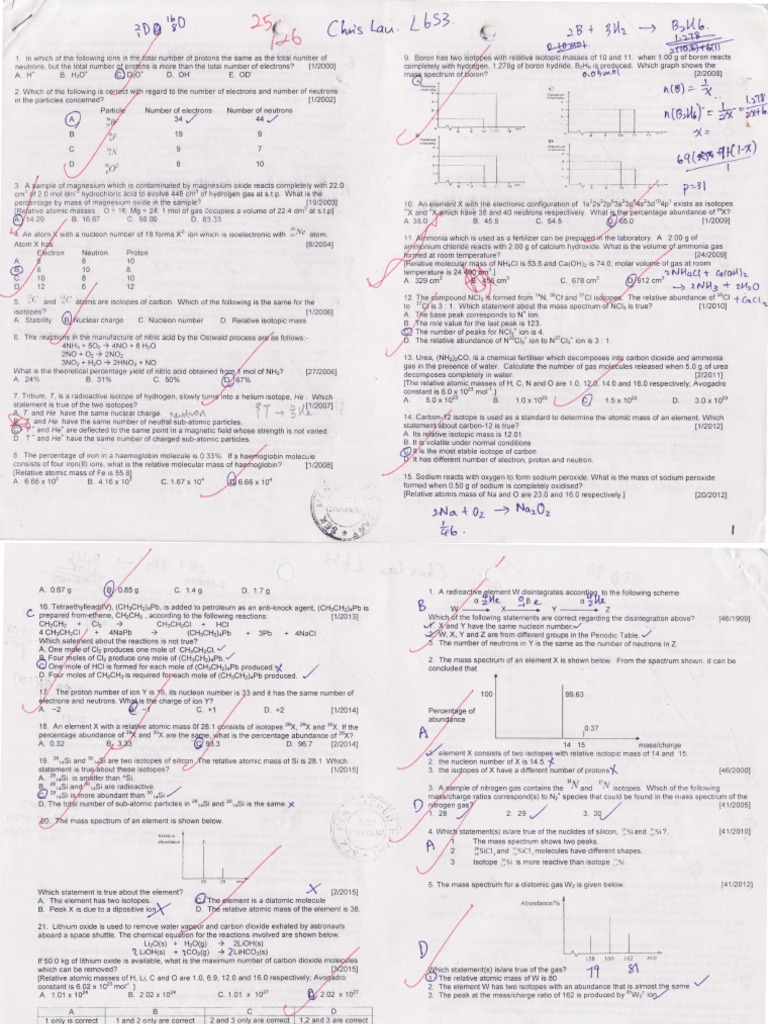 25
/26
Chris Lau. L6S3.
2B + 3H₂ → B₂H₆.
1. In which of the following ions is the total number of protons the same as the total number of
neutrons, but the total number of protons is more than the total number of electrons? [1/2000]
A. H⁺ B. H₃O⁺ C. D₃O⁺ D. OH⁻ E. OD⁻
2. Which of the following is correct with regard to the number of electrons and number of neutrons
in the particles concerned? [1/2002]
Particle Number of electrons Number of neutrons
A 34 44
B 19 9
C 9 7
D 8 10
3. A sample of magnesium which is contaminated by magnesium oxide reacts completely with 22.0
cm³ of 2.0 mol dm⁻³ hydrochloric acid to evolve 448 cm³ of hydrogen gas at s.t.p. What is the
percentage by mass of magnesium oxide in the sample? [19/2003]
[Relative atomic masses O = 16; Mg = 24; 1 mol of gas occupies a volume of 22.4 dm³ at s.t.p]
14.29 B. 16.67 C. 50.00 D. 83.33
4. An atom X with a nucleon number of 18 forms X²⁻ ion which is isoelectronic with Ne atom.
Atom X has [8/2004]
Electron Neutron Proton
A 8 8 10
B 8 10 8
C 10 8 10
D 12 6 12
5. C and C atoms are isotopes of carbon. Which of the following is the same for the
isotopes? [1/2006]
A. Stability B. Nuclear charge C. Nucleon number D. Relative isotopic mass
6. The reactions in the manufacture of nitric acid by the Ostwald process are as follows:-
4NH₃ + 5O₂ → 4NO + 6H₂O
2NO + O₂ → 2NO₂
3NO₂ + H₂O → 2HNO₃ + NO
What is the theoretical percentage yield of nitric acid obtained from 1 mol of NH₃? [27/2006]
A. 24% B. 31% C. 50% D. 67%
7. Tritium, T, is a radioactive isotope of hydrogen, slowly turns into a helium isotope, He. Which
statement is true of the two isotopes? [1/2007]
A. T and He have the same nuclear charge.
B. T and He have the same number of neutral sub-atomic particles.
T⁺ and He⁺ are deflected to the same point in a magnetic field whose strength is not varied.
D. T⁺ and He⁺ have the same number of charged sub-atomic particles.
8. The percentage of iron in a haemoglobin molecule is 0.33%. If a haemoglobin molecule
consists of four iron(II) ions, what is the relative molecular mass of haemoglobin? [1/2008]
[Relative atomic mass of Fe is 55.8]
A. 6.66 x 10² B. 4.16 x 10³ C. 1.67 x 10⁴ D. 6.66 x 10⁴
9. Boron has two isotopes with relative isotopic masses of 10 and 11. when 1.00 g of boron reacts
completely with hydrogen, 1.278g of boron hydride, B₂H₆ is produced. Which graph shows the
mass spectrum of boron? [2/2008]
n(B) = 1/x
n(B₂H₆) = 1/2x = 1.278/2x+6
x =
10 An element X with the electronic configuration of 1s²2s²2p⁶3s²3p⁶4s²3d¹⁰4p¹ exists as isotopes
⁶⁹X and ⁷¹X which have 38 and 40 neutrons respectively. What is the percentage abundance of ⁶⁹X?
A 35.0 B. 45.5 C. 54.5 D. 65.0 [1/2009]
11 Ammonia which is used as a fertilizer can be prepared in the laboratory. A 2.00 g of
ammonium chloride reacts with 2.00 g of calcium hydroxide. What is the volume of ammonia gas
formed at room temperature? [24/2009]
[Relative molecular mass of NH₄Cl is 53.5 and Ca(OH)₂ is 74.0; molar volume of gas at room
temperature is 24 400 cm³]
A. 329 cm³ B. 456 cm³ C. 678 cm³ D. 912 cm³
2NH₄Cl + Ca(OH)₂
→ 2NH₃ + 2H₂O
+ CaCl₂
12 The compound NCl₃ is formed from ¹⁴N, ³⁵Cl and ³⁷Cl isotopes. The relative abundance of ³⁵Cl
to ³⁷Cl is 3 : 1. Which statement about the mass spectrum of NCl₃ is true? [1/2010]
A The base peak corresponds to N⁺ ion
B. The m/e value for the last peak is 123.
C The number of peaks for NCl₃⁺ ion is 4.
D. The relative abundance of N³⁵Cl₃⁺ ion to N³⁷Cl₃⁺ ion is 3 : 1.
13. Urea, (NH₂)₂CO, is a chemical fertiliser which decomposes into carbon dioxide and ammonia
gas in the presence of water. Calculate the number of gas molecules released when 5.0 g of urea
decomposes completely in water. [2/2011]
[The relative atomic masses of H, C, N and O are 1.0, 12.0, 14.0 and 16.0 respectively; Avogadro
constant is 6.0 x 10²³ mol⁻¹]
A. 5.0 x 10²³ B. 1.0 x 10²³ C. 1.5 x 10²³ D. 3.0 x 10²³
14. Carbon-12 isotope is used as a standard to determine the atomic mass of an element. Which
statement about carbon-12 is true? [1/2012]
A. Its relative isotopic mass is 12.01
B. It is volatile under normal conditions
C It is the most stable isotope of carbon
D. It has different number of electron, proton and neutron.
15. Sodium reacts with oxygen to form sodium peroxide. What is the mass of sodium peroxide
formed when 0.50 g of sodium is completely oxidised?
[Relative atomis mass of Na and O are 23.0 and 16.0 respectively.] [20/2012]
2Na + O₂ → Na₂O₂
1/46.
1
A. 0.67 g B. 0.85 g C. 1.4 g D. 1.7 g
C
16. Tetraethyllead(IV), (CH₃CH₂)₄Pb, is added to petroleum as an anti-knock agent, (CH₃CH₂)₄Pb is
prepared from ethene, CH₂CH₂, according to the following reactions: [1/2013]
CH₂CH₂ + Cl₂ → CH₃CH₂Cl + HCl
4 CH₃CH₂Cl + 4NaPb → (CH₃CH₂)₄Pb + 3Pb + 4NaCl
Which satement about the reactions is not true?
A. One mole of Cl₂ produces one mole of CH₃CH₂Cl
B. Four moles of Cl₂ produce one mole of (CH₃CH₂)₄Pb.
C One mole of HCl is formed for each mole of (CH₃CH₂)₄Pb produced.
D. Four moles of CH₂CH₂ is required for each mole of (CH₃CH₂)₄Pb produced.
17. The proton number of ion Y is 16, its nucleon number is 33 and it has the same number of
electrons and neutrons. What is the charge of ion Y?
A. −2 −1 C. +1 D. +2 [1/2014]
18. An element X with a relative atomic mass 0f 28.1 consists of isotopes ²⁸X, ²⁹X and ³⁰X. If the
percentage abundance of ²⁹X and ³⁰X are the same, what is the percentage abundance of ²⁸X?
A. 0.32 B. 3.33 C. 93.3 D. 96.7 [2/2014]
19. ²⁸₁₄Si and ³⁰₁₄Si are two isotopes of silicon. The relative atomic mass of Si is 28.1. Which
statement is true about these isotopes? [1/2015]
B. ²⁸₁₄Si and ³⁰₁₄Si are radioactive.
²⁸₁₄Si is more abundant than ³⁰₁₄Si
D. The total number of sub-atomic particles in ²⁸₁₄Si and ³⁰₁₄Si is the same.
20. The mass spectrum of an element is shown below.
Relative
abundance
W 28 m/e
Which statement is true about the element? [2/2015]
A. The element has two isotopes. C. The element is a diatomic molecule
B. Peak X is due to a dipositive ion D. The relative atomic mass of the element is 38.
21. Lithium oxide is used to remove water vapour and carbon dioxide exhaled by astronauts
aboard a space shuttle. The chemical equation for the reactions involved are shown below.
Li₂O(s) + H₂O(g) → 2LiOH(s)
2LiOH(s) + 2CO₂(g) → 2LiHCO₃(s)
If 50.0 kg of lithium oxide is available, what is the maximum number of carbon dioxide molecules
which can be removed? [3/2015]
[Relative atomic masses of H, Li, C and O are 1.0, 6.9, 12.0 and 16.0 respectively; Avogadro
constant is 6.02 x 10²³ mol⁻¹]
A 1.01 x 10²⁴ B 2.02 x 10²⁴ C. 1.01 x 10²⁷ D. 2.02 x 10²⁷
A B C D
1 only is correct 1 and 2 only are correct 2 and 3 only are correct 1,2 and 3 are correct
1. A radioactive element W disintegrates according to the following scheme.
B
W → X → Y → Z
Which of the following statements are correct regarding the disintegration above? [46/1999]
1. X and Y have the same nucleon number
2. W, X, Y and Z are from different groups in the Periodic Table.
3. The number of neutrons in Y is the same as the number of neutrons in Z.
2. The mass spectrum of an element X is shown below. From the spectrum shown, it can be
concluded that
A
100 99.63
Percentage of
abundance
0.37
14 15 mass/charge
1. element X consists of two isotopes with relative isotopic mass of 14 and 15.
2. the nucleon number of X is 14.5
3. the isotopes of X have a different number of protons [46/2000]
D
3. A sample of nitrogen gas contains the N and N isotopes. Which of the following
mass/charge ratios correspond(s) to N₂⁺ species that could be found in the mass spectrum of the
nitrogen gas? [41/2005]
1. 28 2. 29 3. 30
A
4 Which statement(s) is/are true of the nuclides of silicon, Si and Si? [41/2010]
1 The mass spectrum shows two peaks.
2 SiCl₄ and SiCl₄ molecules have different shapes.
3 Isotope Si is more reactive than isotope Si.
5. The mass spectrum for a diatomic gas W₂ is given below. [41/2012]
D
Abundance/%
158 160 162 m/e
79 81
Which statement(s) is/are true of the gas?
1 The relative atomic mass of W is 80
2. The element W has two isotopes with an abundance that is almost the same
3. The peak at the mass/charge ratio of 162 is produced by ⁸¹W₂⁺ ion